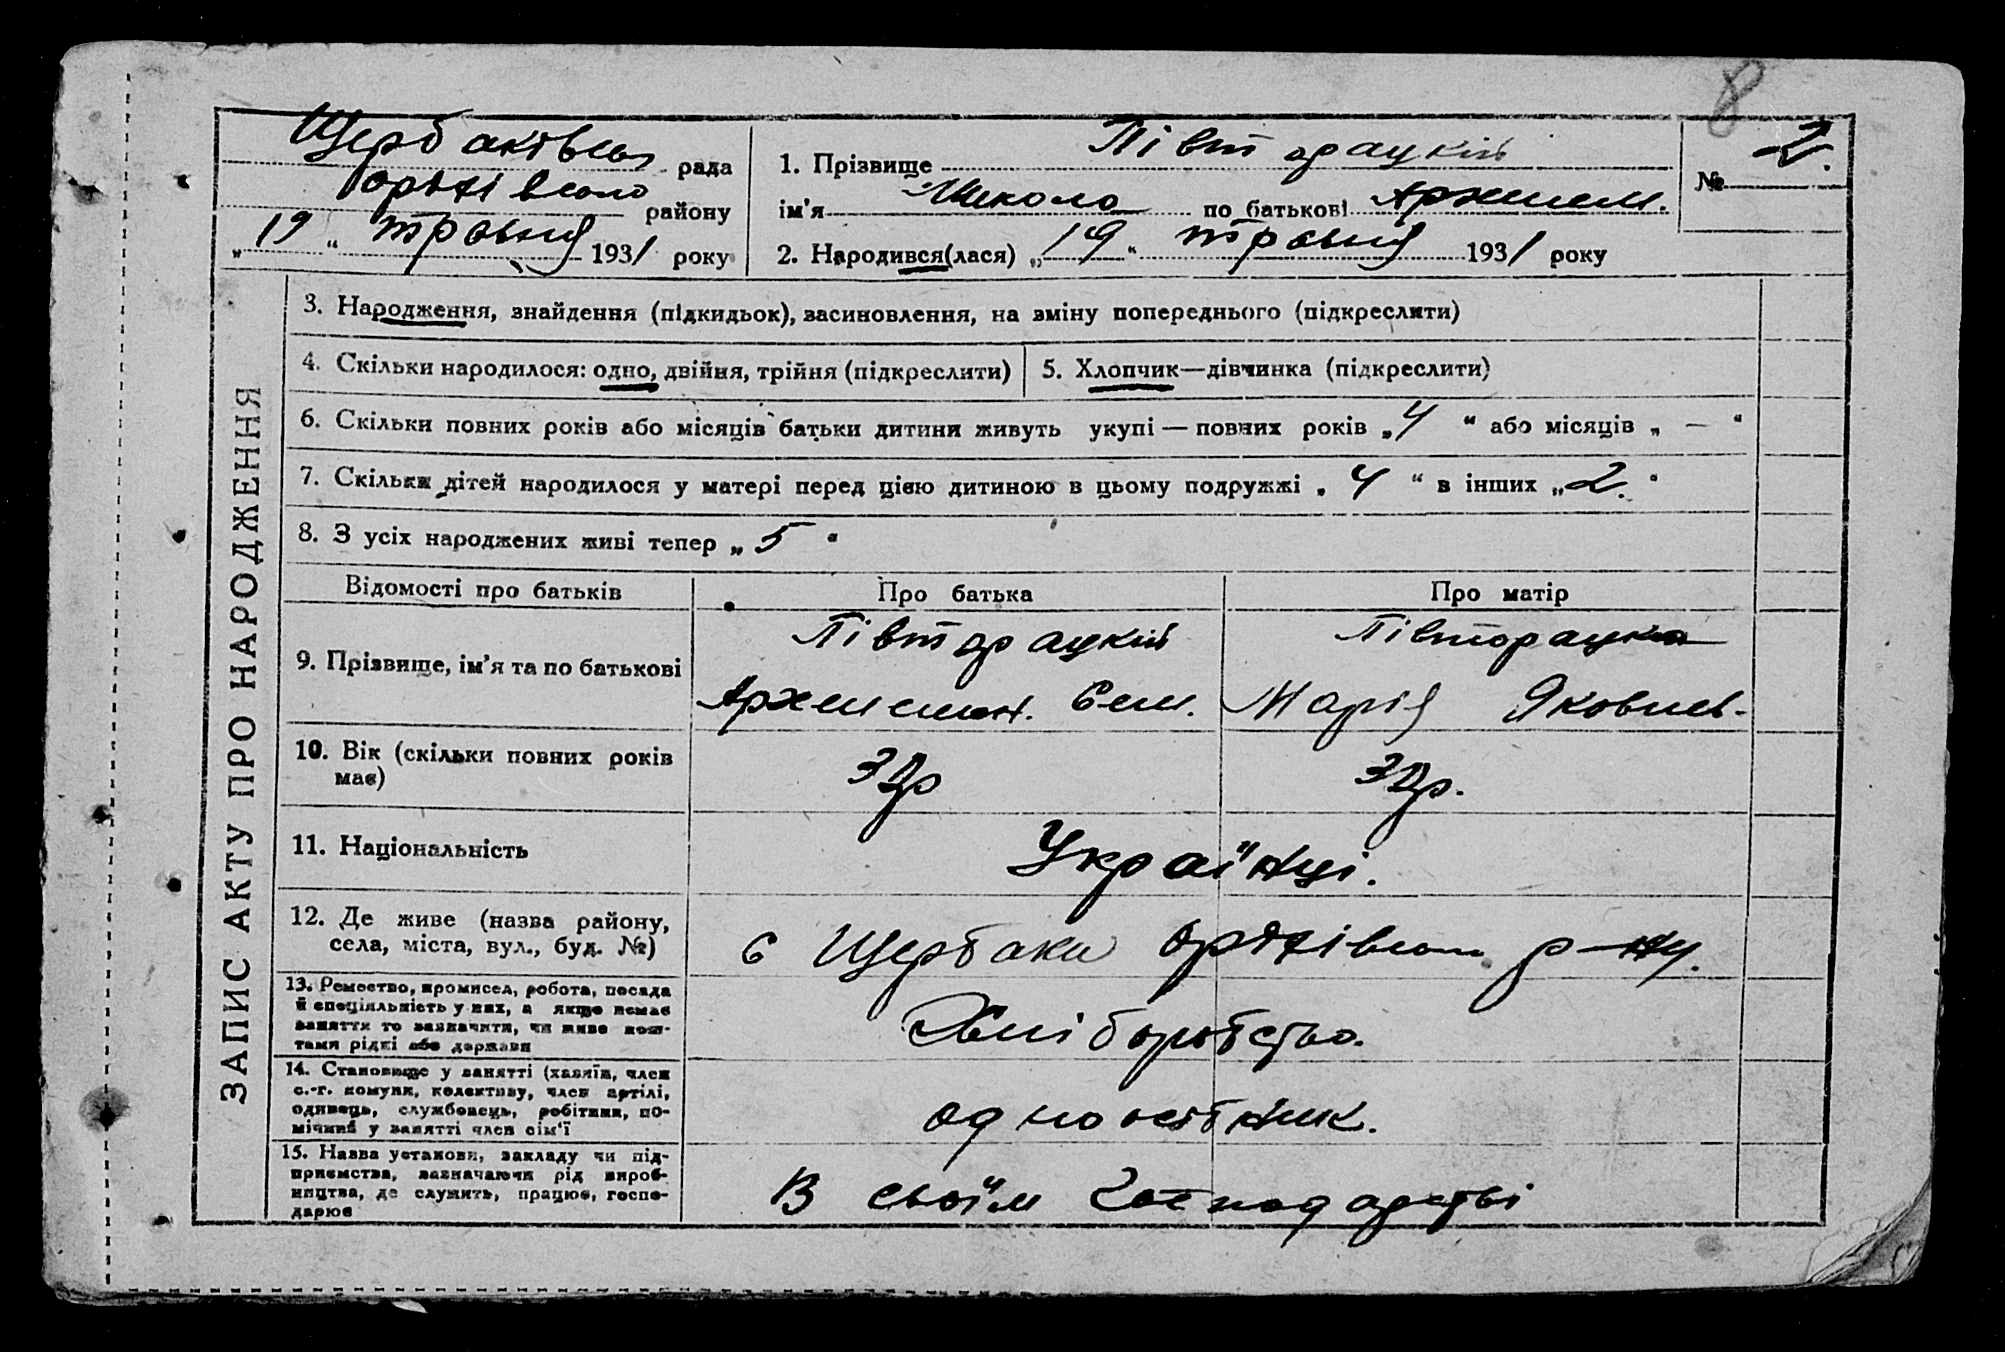 8
Щербаківська рада
Оржівського району
„ 19 “ травня 1931 року
1. Прізвище Півторацкій
ім'я Микола по батькові Архипом.
2. Народився(лася) „ 19 “ травня 1931 року
№ 2.
ЗАПИС АКТУ ПРО НАРОДЖЕННЯ
3. Народження, знайдення (підкидьок), васиновлення, на зміну попереднього (підкреслити)
4. Скільки народилося: одно, двійня, трійня (підкреслити)
5. Хлопчик—дівчинка (підкреслити)
6. Скільки повних років або місяців батьки дитини живуть укупі — повних років „ 4 “ або місяців „ — “
7. Скільки дітей народилося у матері перед цією дитиною в цьому подружжі „ 4 “ в інших „ 2. “
8. З усіх народжених живі тепер „ 5 “
Відомості про батьків Про батька Про матір
9. Прізвище, ім'я та по батькові
Півторацкій Півторацка
Сем. Марія Яковлев.
10. Вік (скільки повних років
має)
32р 32р.
11. Національність
Українці.
12. Де живе (назва району,
села, міста, вул., буд. №)
с Щербаки р-ну.
13. Ремество, промисел, робота, посада
й спеціяльність у них, а якщо немає
заняття то зазначити, чи живе кош-
тами рідні або держави
Хліборобство.
14. Становище у занятті (хазяїн, член
с.-г. комуни, колективу, член артілі,
одинець, службовець, робітник, по-
мічний у занятті член сім'ї
одноосібник.
15. Назва установи, закладу чи під-
приємства, зазначаючи рід вироб-
ництва, де служить, працює, госпо-
дарює
В своїм господарстві